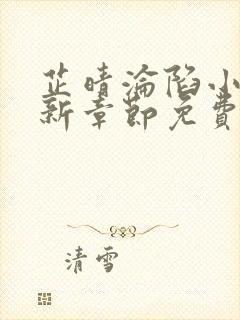 芷晴淪陷小
新章節免費
清雪